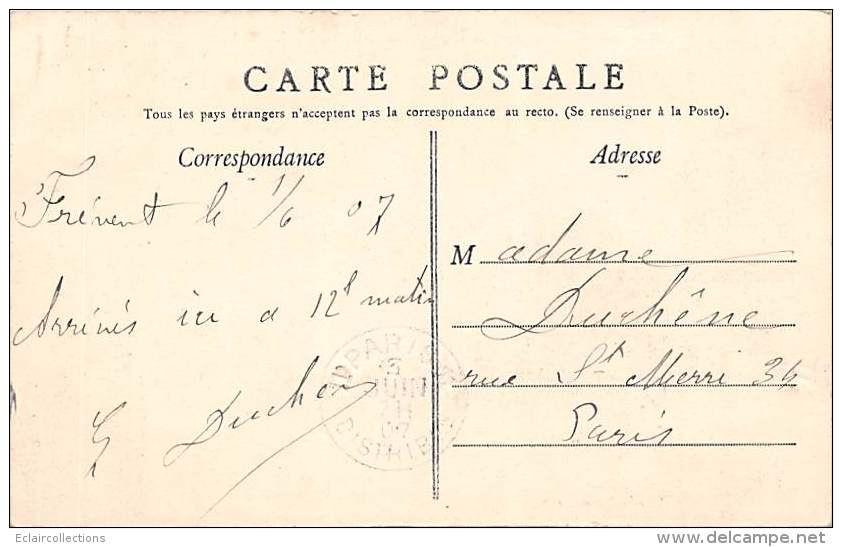 CARTE POSTALE
Tous les pays étrangers n'acceptent pas la correspondance au recto. (Se renseigner à la Poste).
Correspondance
Adresse
Frévent le 1/6 07
Arrivés ici a 12h matin
Madame
Duchêne
rue St Merri 34
Paris
PARIS
JUIN
07
DISTRIB
Eclaircollections
delcampe.net